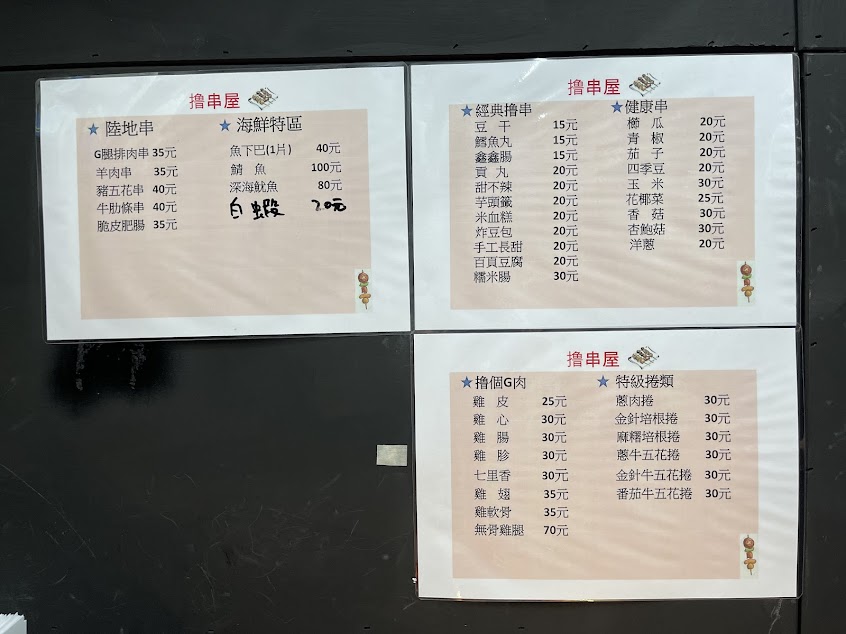 撸串屋
陸地串
G腿排肉串 35元
羊肉串 35元
豬五花串 40元
牛肋條串 40元
脆皮肥腸 35元
海鮮特區
魚下巴(1片) 40元
鯖 魚 100元
深海魷魚 80元
白蝦 20元
撸串屋
經典撸串
豆 干 15元
鱈魚丸 15元
鑫鑫腸 15元
貢 丸 20元
甜不辣 20元
芋頭籤 20元
米血糕 20元
炸豆包 20元
手工長甜 20元
百頁豆腐 20元
糯米腸 30元
健康串
櫛 瓜 20元
青 椒 20元
茄 子 20元
四季豆 20元
玉 米 30元
花椰菜 25元
香 菇 30元
杏鮑菇 30元
洋蔥 20元
撸串屋
撸個G肉
雞 皮 25元
雞 心 30元
雞 腸 30元
雞 胗 30元
七里香 30元
雞 翅 35元
雞軟骨 35元
無骨雞腿 70元
特級捲類
蔥肉捲 30元
金針培根捲 30元
麻糬培根捲 30元
蔥牛五花捲 30元
金針牛五花捲 30元
番茄牛五花捲 30元